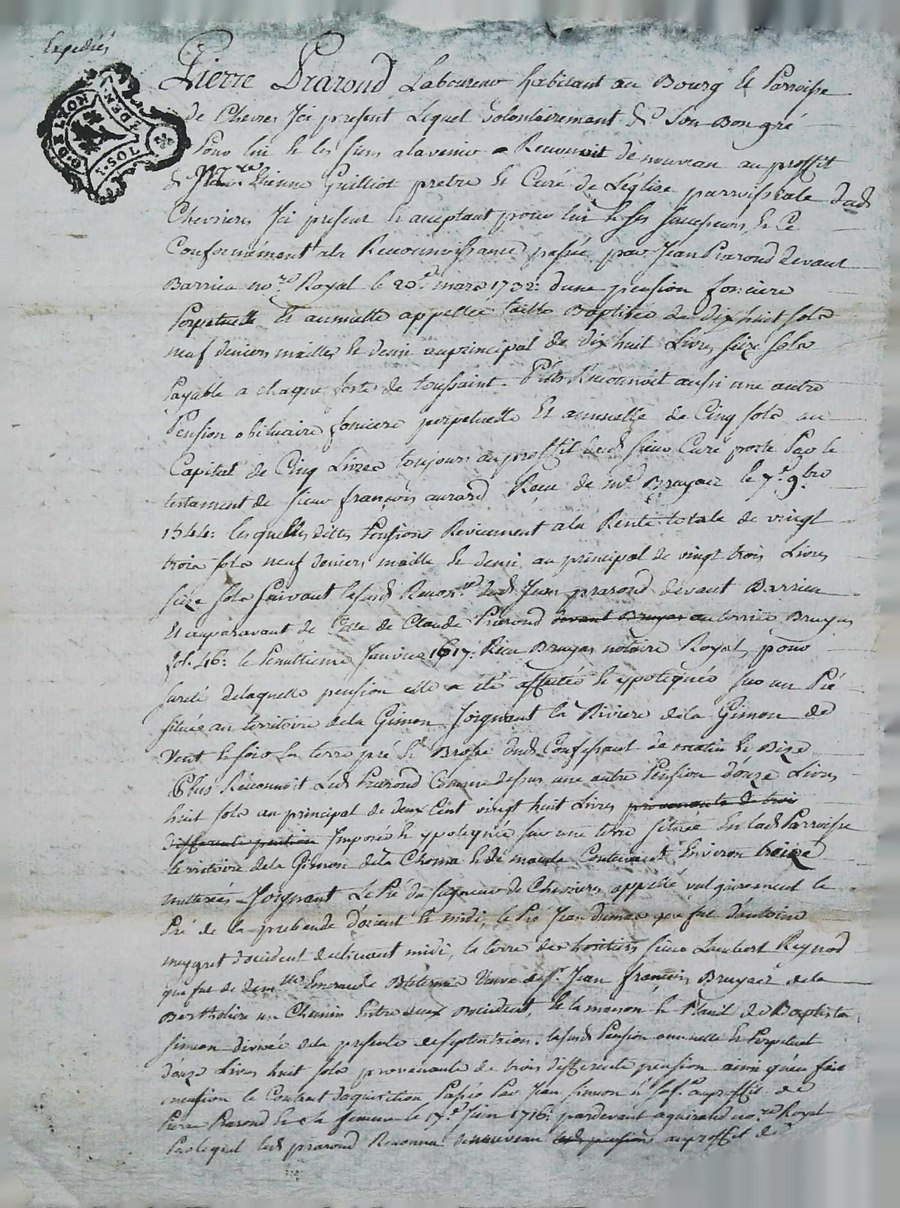 Expediés
Pierre Prarond Laboureur habitant au Bourg et Parroisse
de Chevrer Jci present Lequel volontairement & Son Bon gré
Pour lui & les siens alavenir a Reconnoit de nouveau au proffit
de Etienne Guilliot pretre et Curé de L'église parroissiale dud
Chevrieres Jci present & acceptant pour lui & ses successeurs, & Ce
Conformément ala Reconnoissance passée par Jean Prarond devant
Barrieu no.re Royal le 20.e mars 1732. d'une pension fonciere
Perpetuelle Et annuelle appellée de dix huit sols
neuf deniers maille & demi auprincipal de dix huit Livres seize sols
Payable a chaque feste de toussaint. Plus Reconnoit aussi une autre
Pension obituaire fonciere perpetuelle Et annuelle de Cinq sols au
Capital de Cinq Livres toujours au proffit dud. Sieur Curé porté Par le
testament de sieur françois aurard Recu de m.e Bruyas le 7.e 9.bre
1544: lesquelles dittes Pensions Reviennent ala Rente totale de vingt
trois sols neuf deniers maille & demi au principal de vingt trois Livres
seize sols suivant Recon.ce dud. Jean prarond devant Barrieu
Et auparavant de Celle de Claude Prarond devant Bruyas au terrier Bruyas
fol. 46: le Penultieme Janvier 1617: Recu Bruyas notaire Royal, pour
sureté delaquelle pension elle a été affectée & ypotequée sur un Pré
situé au territoire dela Gimon Joignant la Riviere dela Gimon de
vent & soir la terre pré & Brosse dud. Confessant de matin & Bize
Plus Reconnoit Led. Prarond Comme dessus une autre Pension d'onze Livres
huit sols au principal de deux Cent vingt huit Livres provenante de trois
differente pention Imposée & ypotequée sur une terre située En lad. Parroisse
territoire dela Gimon dela Choma & de Contenant Environ treize
metterées Joignant Le Pré du seigneur de Chevrieres appellé vulgairement le
Pré de la prebende d'orient & midi, le Pré Jean que fut d'antoine
meygret d'occident declinant midi, la terre des hoirs sieur Lambert Reynod
que fut de dem.lle Emeraude Veuve de s.r Jean françois Bruyas de la
Bertholiere un Chemin Entre deux occident, & la maison & de Baptiste
simon divisée dela presente de septentrion. Lad. Pension annuelle & Perpetuel
d'onze Livres huit sols provenante de trois differente pension ainsi qu'en fait
mention le Contrat d'aquisition Passé Par Jean simon auproffit de
Pierre Prarond & sa femme le Juin 1716: pardevant no.re Royal
Parlequel led. prarond Reconnu denouveau lad. pension auproffit dud.